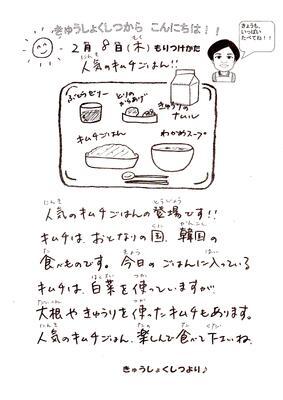 きゅうしょくしつから こんにちは!!
きょうも、
いっぱい
たべてね!!
2月 8日(木) もりつけかた
人気のキムチごはん!!
ぶどうゼリー
とりの
からあげ
きゅうりの
ナムル
キムチごはん
わかめスープ
人気のキムチごはんの登場です!!
キムチは、おとなりの国、韓国の
食べものです。今日のごはんに入っている
キムチは、白菜を使っていますが、
大根やきゅうりを使ったキムチもあります。
人気のキムチごはん、楽しんで食べて下さいね。
きゅうしょくしつより♪